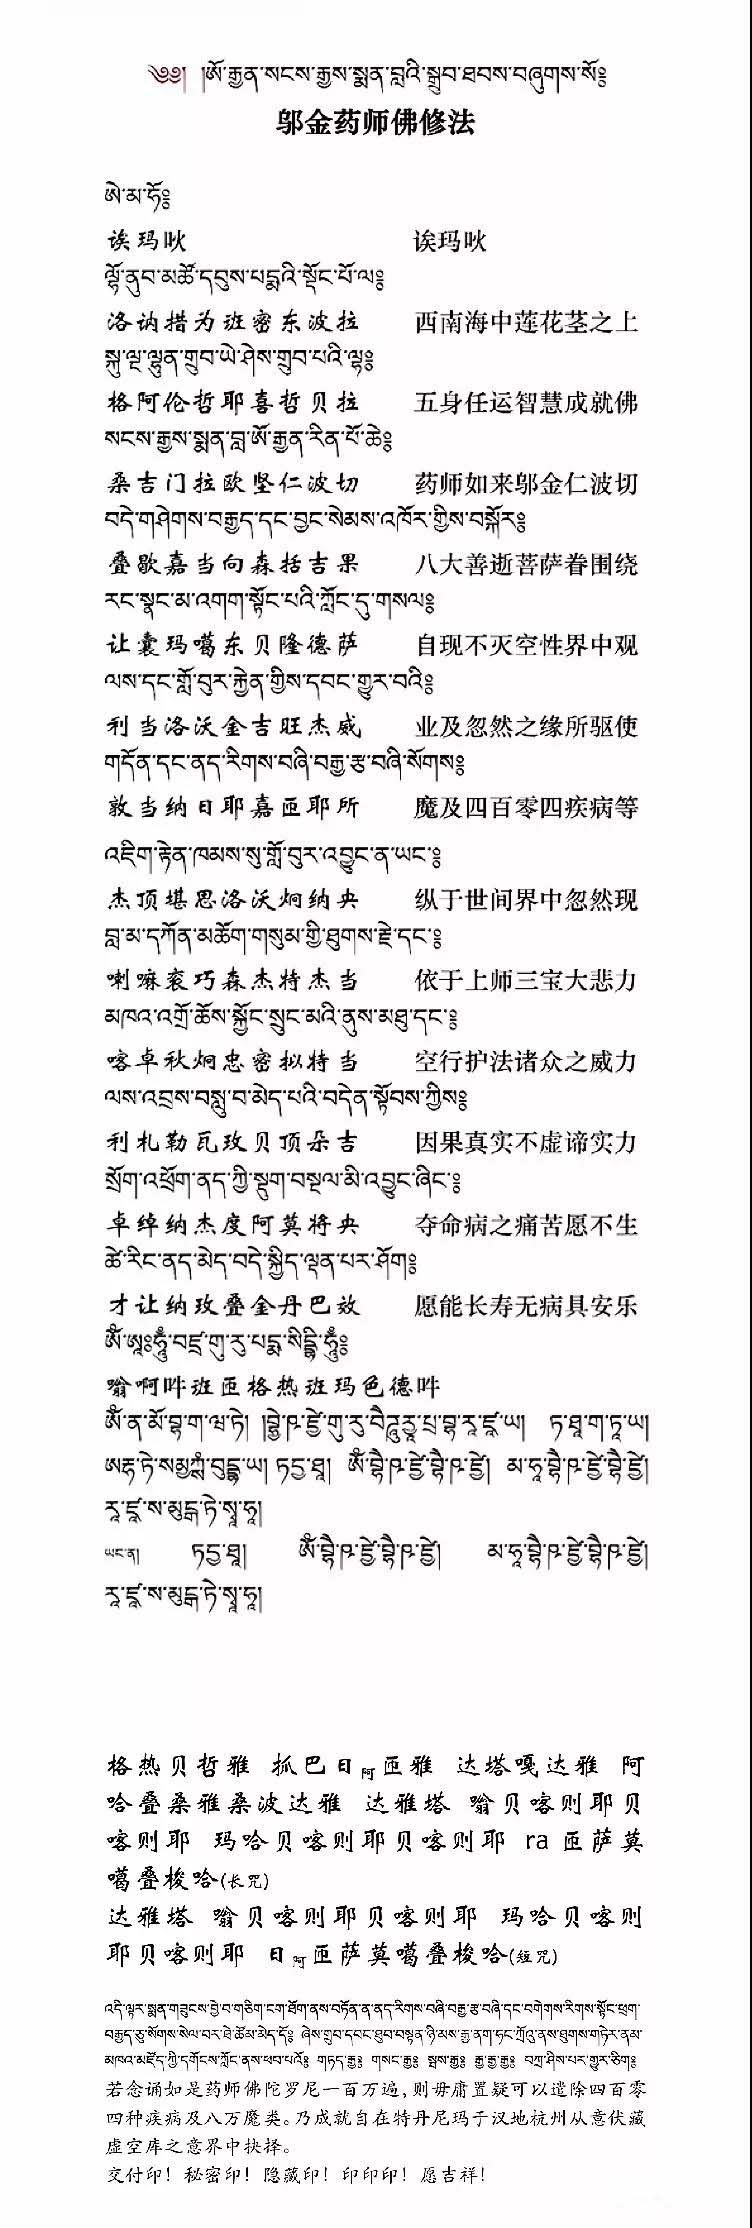 ༄༅། །ཨོ་རྒྱན་སངས་རྒྱས་སྨན་བླའི་སྒྲུབ་ཐབས་བཞུགས་སོ༔
邬金药师佛修法
ཨེ་མ་ཧོ༔
诶玛吙 诶玛吙
ལྷོ་ནུབ་མཚོ་དབུས་པདྨའི་སྡོང་པོ་ལ༔
洛讷措为班密东波拉 西南海中莲花茎之上
སྐུ་ལྔ་ལྷུན་གྲུབ་ཡེ་ཤེས་གྲུབ་པའི་ལྷ༔
格阿伦哲耶喜哲贝拉 五身任运智慧成就佛
སངས་རྒྱས་སྨན་བླ་ཨོ་རྒྱན་རིན་པོ་ཆེ༔
桑吉门拉欧坚仁波切 药师如来邬金仁波切
བདེ་གཤེགས་བརྒྱད་དང་བྱང་སེམས་འཁོར་གྱིས་བསྐོར༔
叠歇嘉当向森括吉果 八大善逝菩萨眷围绕
རང་སྣང་མ་འགག་སྟོང་པའི་ཀློང་དུ་གསལ༔
让囊玛噶东贝隆德萨 自现不灭空性界中观
ལས་དང་གློ་བུར་རྐྱེན་གྱིས་དབང་གྱུར་བའི༔
利当洛沃金吉旺杰威 业及忽然之缘所驱使
གདོན་དང་ནད་རིགས་བཞི་བརྒྱ་རྩ་བཞི་སོགས༔
敦当纳日耶嘉匝耶所 魔及四百零四疾病等
འཇིག་རྟེན་ཁམས་སུ་གློ་བུར་འབྱུང་ན་ཡང་༔
杰顶堪思洛沃炯纳央 纵于世间界中忽然现
བླ་མ་དཀོན་མཆོག་གསུམ་གྱི་ཐུགས་རྗེ་དང་༔
喇嘛衮巧森杰特杰当 依于上师三宝大悲力
མཁའ་འགྲོ་ཆོས་སྐྱོང་སྲུང་མའི་ནུས་མཐུ་དང་༔
喀卓秋炯忠密拟特当 空行护法诸众之威力
ལས་འབྲས་བསླུ་བ་མེད་པའི་བདེན་སྟོབས་ཀྱིས༔
利札勒瓦玫贝顶朵吉 因果真实不虚谛实力
སྲོག་འཕྲོག་ནད་ཀྱི་སྡུག་བསྔལ་མི་འབྱུང་ཞིང་༔
卓绰纳杰度阿莫将央 夺命病之痛苦愿不生
ཚེ་རིང་ནད་མེད་བདེ་སྐྱིད་ལྡན་པར་ཤོག༔
才让纳玫叠金丹巴效 愿能长寿无病具安乐
ཨོཾ་ཨཱཿཧཱུྃ་བཛྲ་གུ་རུ་པདྨ་སིདྡྷི་ཧཱུྃ༔
嗡啊吽班匝格热班玛色德吽
ཨོཾ་ན་མོ་བྷ་ག་ཝ་ཏེ། །བྷཻ་ཥ་ཛྱེ་གུ་རུ་བཻཌཱུརྱ་པྲ་བྷ་རཱ་ཛཱ་ཡ། ཏ་ཐཱ་ག་ཏཱ་ཡ།
ཨརྷ་ཏེ་སམྱཀྶཾ་བུདྡྷཱ་ཡ། ཏདྱ་ཐཱ། ཨོཾ་བྷཻ་ཥ་ཛྱེ་བྷཻ་ཥ་ཛྱེ། མ་ཧཱ་བྷཻ་ཥ་ཛྱེ་བྷཻ་ཛྱེ།
རཱ་ཛཱ་ས་མུདྒ་ཏེ་སྭཱ་ཧཱ།
ཡང་ན། ཏདྱ་ཐཱ། ཨོཾ་བྷཻ་ཥ་ཛྱེ་བྷཻ་ཥ་ཛྱེ། མ་ཧཱ་བྷཻ་ཥ་ཛྱེ་བྷཻ་ཥ་ཛྱེ།
རཱ་ཛཱ་ས་མུདྒ་ཏེ་སྭཱ་ཧཱ།
格热贝哲雅 抓巴日阿匝雅 达塔嘎达雅 阿
哈叠桑雅桑波达雅 达雅塔 嗡贝喀则耶贝
喀则耶 玛哈贝喀则耶贝喀则耶 ra匝萨莫
噶叠梭哈(长咒)
达雅塔 嗡贝喀则耶贝喀则耶 玛哈贝喀则
耶贝喀则耶 日阿匝萨莫噶叠梭哈(短咒)
འདི་ལྟར་སྨན་གཟུངས་བྱེ་བ་གཅིག་ངག་ཐོག་ནས་བཏོན་ན་ནད་རིགས་བཞི་བརྒྱ་རྩ་བཞི་དང་བགེགས་རིགས་སྟོང་ཕྲག་
བརྒྱད་ཅུ་སོགས་སེལ་བར་ཐེ་ཚོམ་མེད་དོ༔ ཞེས་གྲུབ་དབང་ཐུབ་བསྟན་ཉི་མས་རྒྱ་ནག་ཧང་ཀྲོའུ་ནས་ཐུགས་གཏེར་ནམ་
མཁའ་མཛོད་ཀྱི་དགོངས་ཀློང་ནས་ཕབ་པའོ༔ གཏད་རྒྱ༔ གསང་རྒྱ༔ སྦས་རྒྱ༔ རྒྱ་རྒྱ་རྒྱ༔ བཀྲ་ཤིས་པར་གྱུར་ཅིག༔
若念诵如是药师佛陀罗尼一百万遍，则毋庸置疑可以遣除四百零
四种疾病及八万魔类。乃成就自在特丹尼玛于汉地杭州从意伏藏
虚空库之意界中抉择。
交付印！秘密印！隐藏印！印印印！愿吉祥！